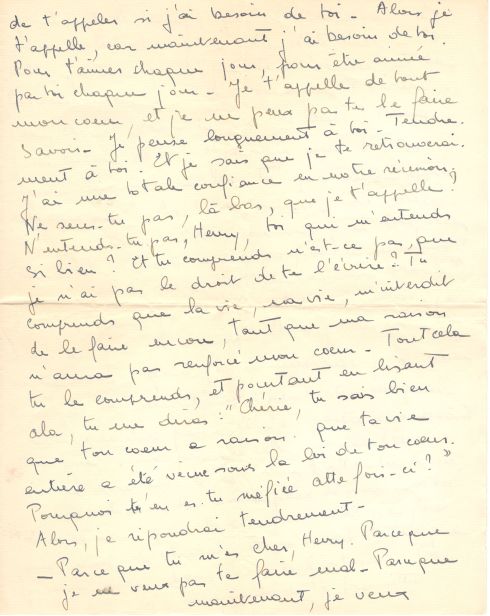 de t'appeler si j'ai besoin de toi - Alors je
t'appelle, car maintenant j'ai besoin de toi.
Pour t'aimer chaque jour, pour être aimée
par toi chaque jour - Je t'appelle de tout
mon coeur, et je ne peux pas te le faire
savoir - Je pense longuement à toi - Tendre.
ment à toi. Et je sais que je te retrouverai.
J'ai une totale confiance en notre réunion,
Ne sens-tu pas, là bas, que je t'appelle ?
N'entends-tu pas, Henry, toi qui m'entends
si bien ? Et tu comprends n'est-ce pas, que
je n'ai pas le droit de te l'écrire ? Tu
comprends que la vie, ma vie, m'interdit
de le faire encore, tant que ma raison
n'aura pas renforcé mon coeur - Tout cela
tu le comprends, et pourtant en lisant
cela, tu me diras : "Chérie, tu sais bien
que ton coeur a raison. que ta vie
entière a été vécue sous la loi de ton coeur.
Pourquoi t'en es-tu méfiée cette fois-ci ? "
Alors, je répondrai tendrement -
- Parce que tu m'es cher, Henry. Parce que
je ne veux pas te faire mal - Parce que
maintenant, je veux